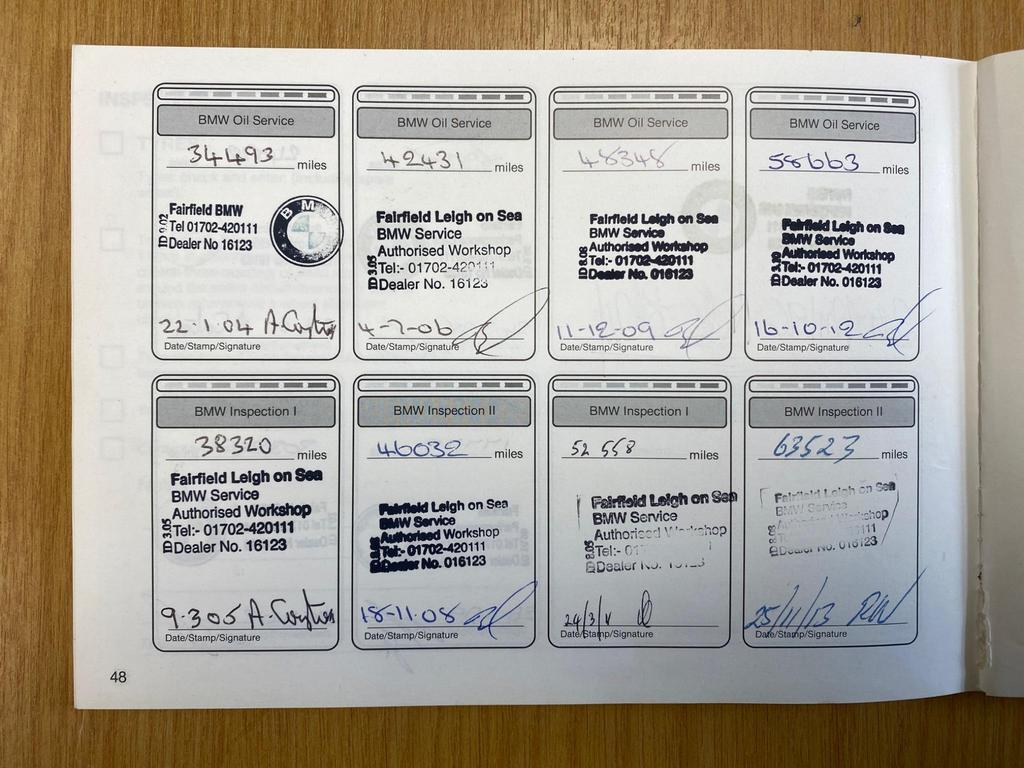 BMW Oil Service
34493 miles
Fairfield BMW
Tel 01702-420111
Dealer No 16123
ID 9.02
BMW
22.1.04
Date/Stamp/Signature
BMW Oil Service
42431 miles
Fairfield Leigh on Sea
BMW Service
Authorised Workshop
Tel:- 01702-420111
Dealer No. 16123
ID 3.05
4-7-06
Date/Stamp/Signature
BMW Oil Service
48348 miles
Fairfield Leigh on Sea
BMW Service
Authorised Workshop
Tel:- 01702-420111
Dealer No. 016123
11-12-09
Date/Stamp/Signature
BMW Oil Service
58663 miles
Fairfield Leigh on Sea
BMW Service
Authorised Workshop
Tel:- 01702-420111
Dealer No. 016123
16-10-12
Date/Stamp/Signature
BMW Inspection I
38320 miles
Fairfield Leigh on Sea
BMW Service
Authorised Workshop
Tel:- 01702-420111
Dealer No. 16123
ID 3.05
9.3.05
Date/Stamp/Signature
BMW Inspection II
46032 miles
Fairfield Leigh on Sea
BMW Service
Authorised Workshop
Tel:- 01702-420111
Dealer No. 016123
18-11-08
Date/Stamp/Signature
BMW Inspection I
52 558 miles
Fairfield Leigh on Sea
BMW Service
Authorised Workshop
Tel:-
Dealer No.
24/3/
Date/Stamp/Signature
BMW Inspection II
63523 miles
Fairfield Leigh on Sea
BMW Service
Authorised Workshop
Dealer No. 016123
25/11/13
Date/Stamp/Signature
48